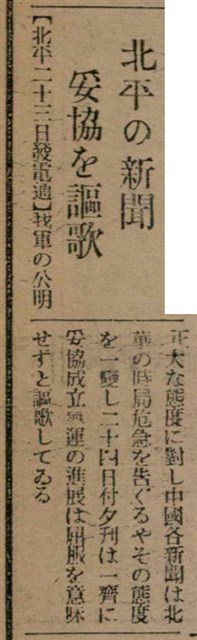 北平の新聞
妥協を謳歌
【北平二十三日發電通】我軍の公明
正大な態度に對し中國各新聞は北
華の時局危急を告ぐるやその態度
を一變し二十四日付夕刊は一齊に
妥協成立氣運の進展は屈服を意味
せずと謳歌してゐる